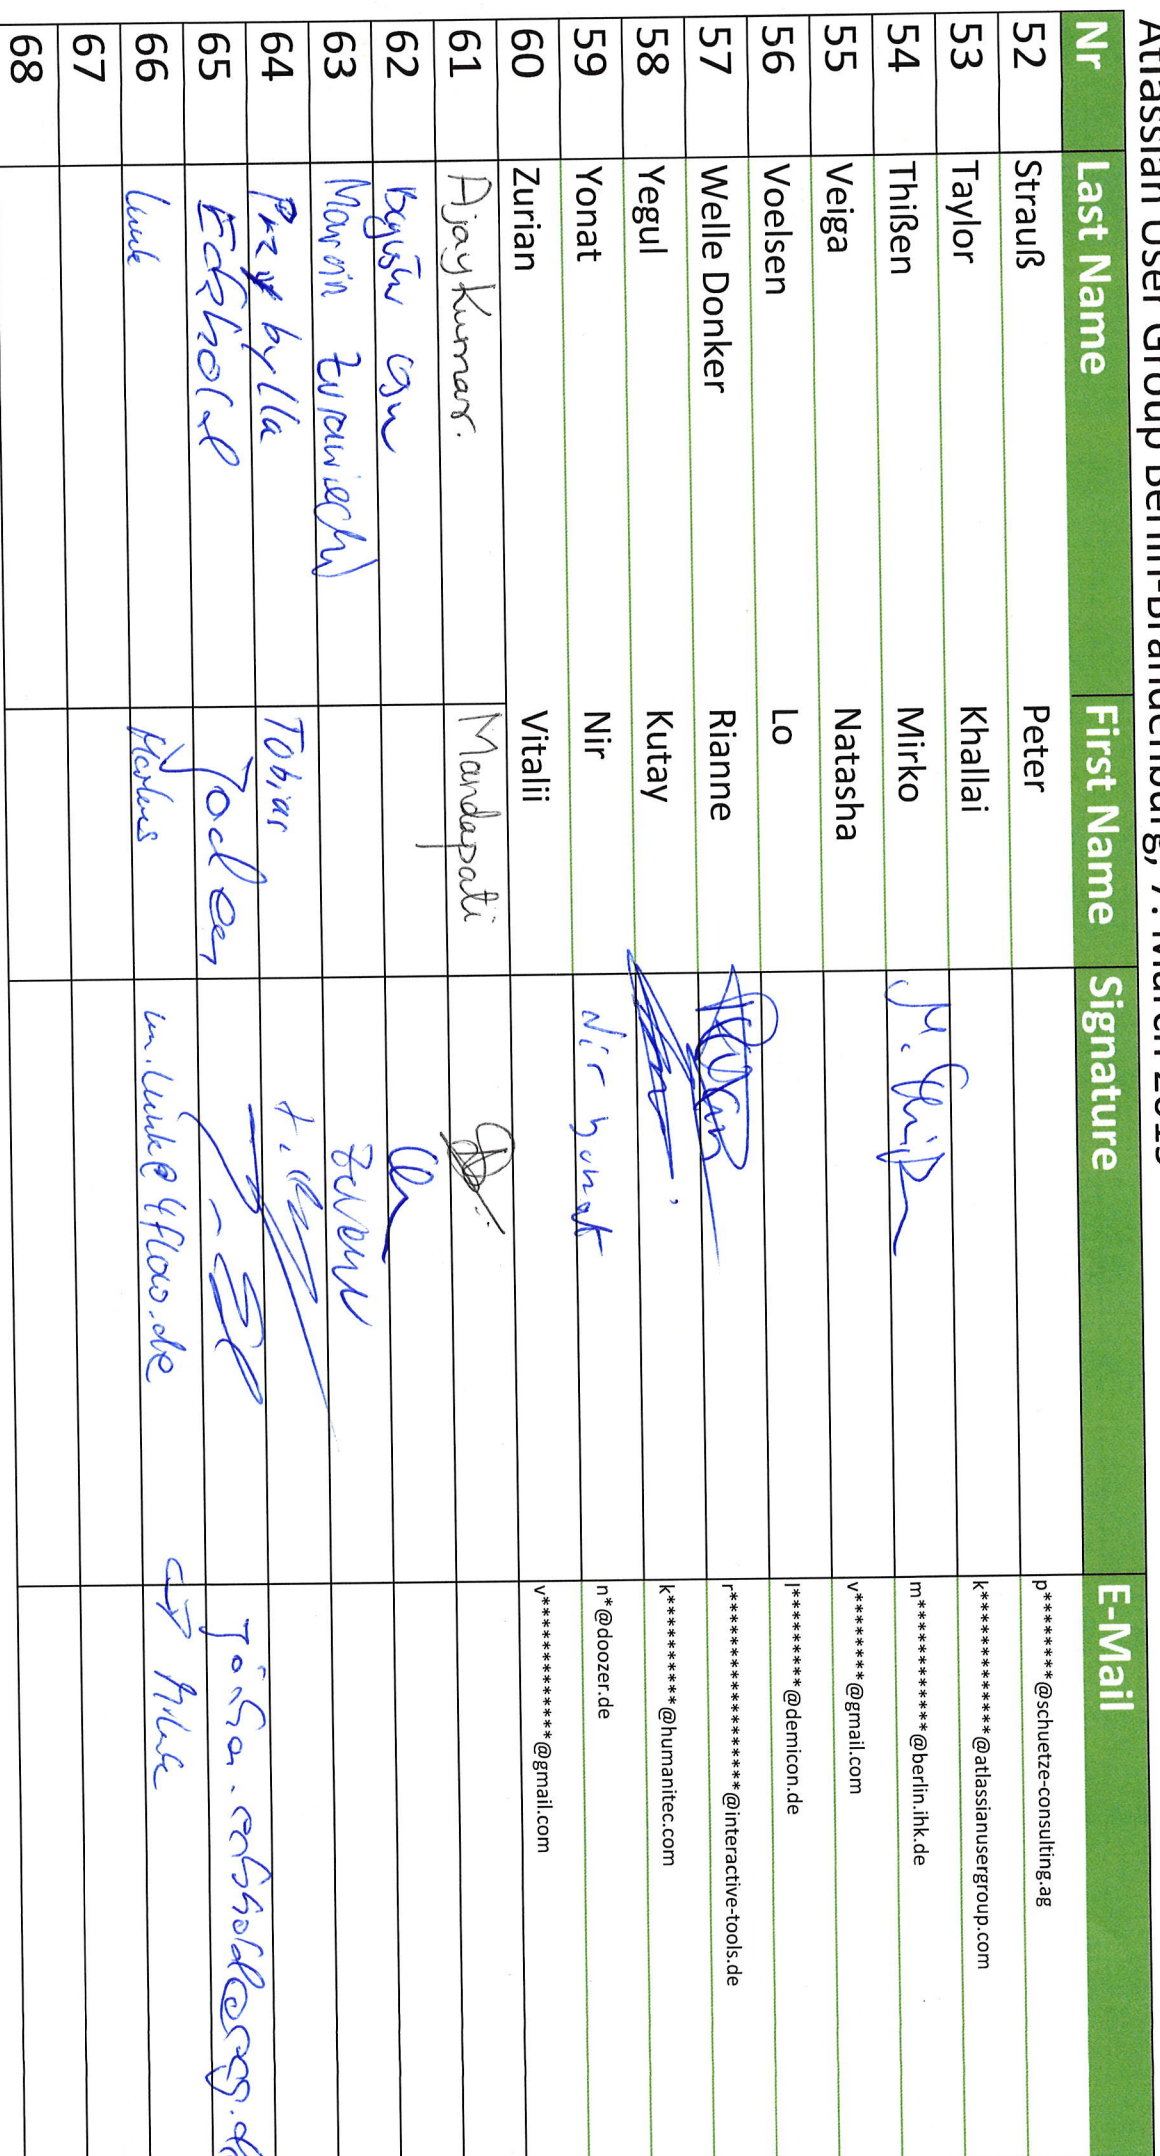 Atlassian User Group Berlin-Brandenburg, 7. March 2019
Nr Last Name First Name Signature E-Mail
52 Strauß Peter p********@schuetze-consulting.ag
53 Taylor Khallai k**************@atlassianusergroup.com
54 Thißen Mirko M. m*************@berlin.ihk.de
55 Veiga Natasha v********@gmail.com
56 Voelsen Lo l*********@demicon.de
57 Welle Donker Rianne r********************@interactive-tools.de
58 Yegul Kutay k***********@humanitec.com
59 Yonat Nir Nir Yonat n*@doozer.de
60 Zurian Vitalii v************@gmail.com
61 Ajay Kumar. Mandapati
62
63 Marcin
64 Przybylla Tobias
65
66 Link Markus m.link@4flow.de
67
68